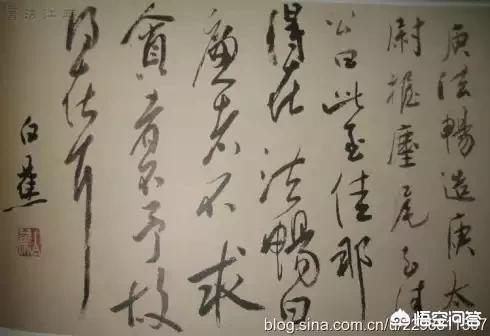 庾法暢造庾太
尉握麈尾至佳
公曰此至佳那
得在法暢曰
廉者不求
貪者不予故
得在耳
白蕉
悟空问答